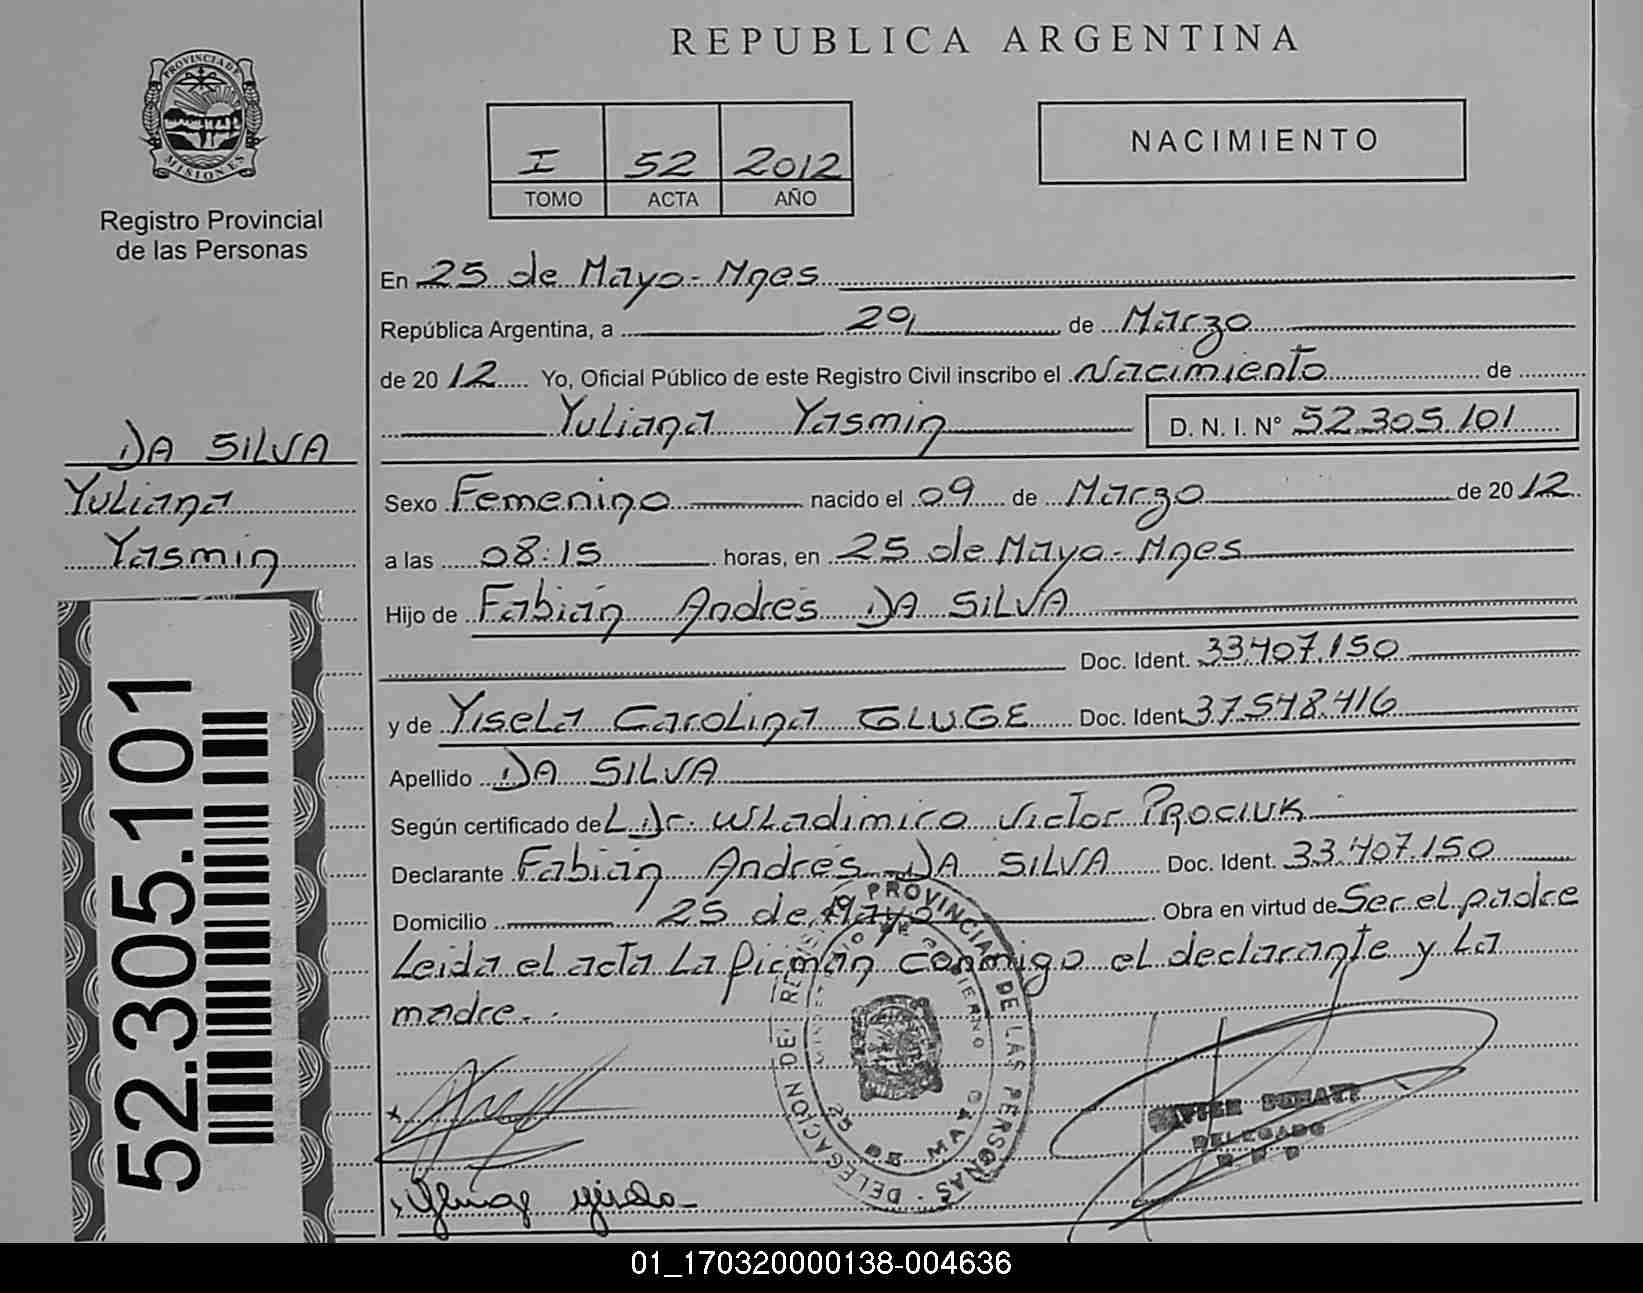 REPUBLICA ARGENTINA
PROVINCIA DE
MISIONES
Registro Provincial
de las Personas
I 52 2012
TOMO ACTA AÑO
NACIMIENTO
En 25 de Mayo - Mnes
República Argentina, a 29 de Marzo
de 2012 Yo, Oficial Público de este Registro Civil inscribo el Nacimiento de
Yuliana Yasmin D. N. I. N° 52.305.101
DA SILVA
Yuliana
Yasmin
Sexo Femenino nacido el 09 de Marzo de 2012
a las 08:15 horas, en 25 de Mayo - Mnes
Hijo de Fabián Andrés DA SILVA
Doc. Ident. 33.407.150
y de Yisela Carolina GLUGE Doc. Ident 37.548.416
Apellido DA SILVA
Según certificado del Dr. Wladimiro Victor PROCIUK
Declarante Fabián Andrés DA SILVA Doc. Ident. 33.407.150
Domicilio 25 de Mayo Obra en virtud de Ser el padre
Leida el acta La firman conmigo el declarante y La
madre.
52.305.101
DELEGACION DEL REGISTRO PROVINCIAL DE LAS PERSONAS
MINISTERIO DE GOBIERNO
25 DE MAYO
DELEGADO
01_170320000138-004636